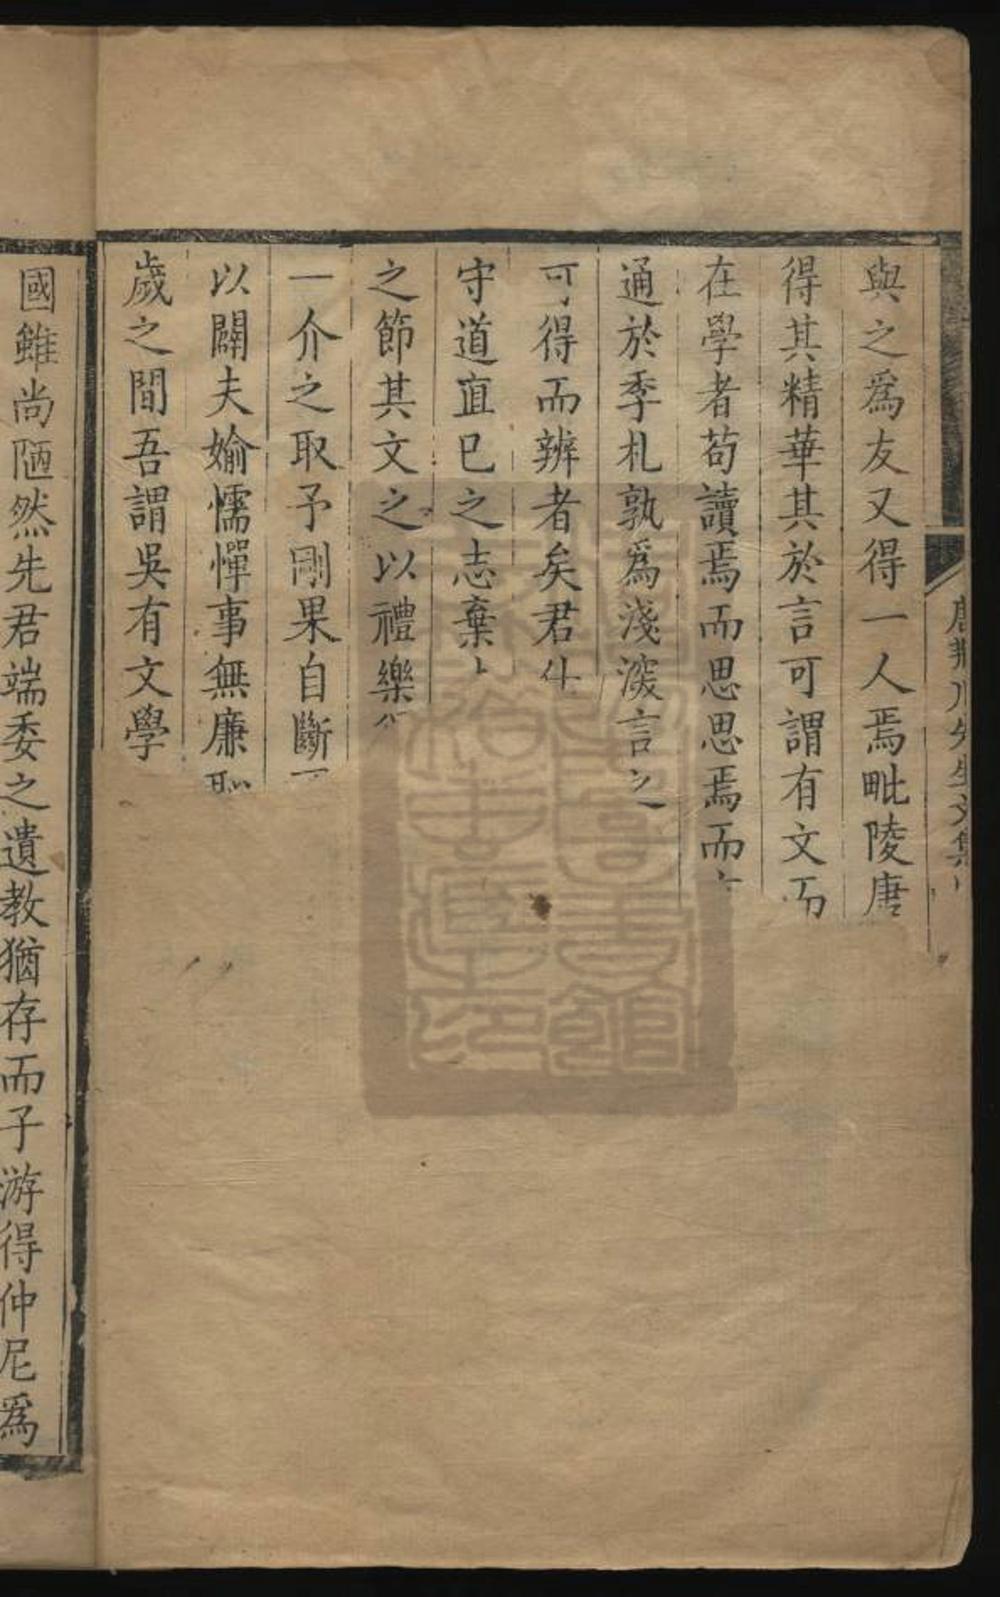 唐荊川先生文集
與之爲友又得一人焉毗陵唐
得其精華其於言可謂有文而
在學者苟讀焉而思思焉而
通於季札孰爲淺深言之
可得而辨者矣君
守道直已之志棄
之節其文之以禮樂
一介之取予剛果自斷
以闢夫婾懦憚事無廉恥
歲之間吾謂吳有文學
國雖尚陋然先君端委之遺教猶存而子游得仲尼爲